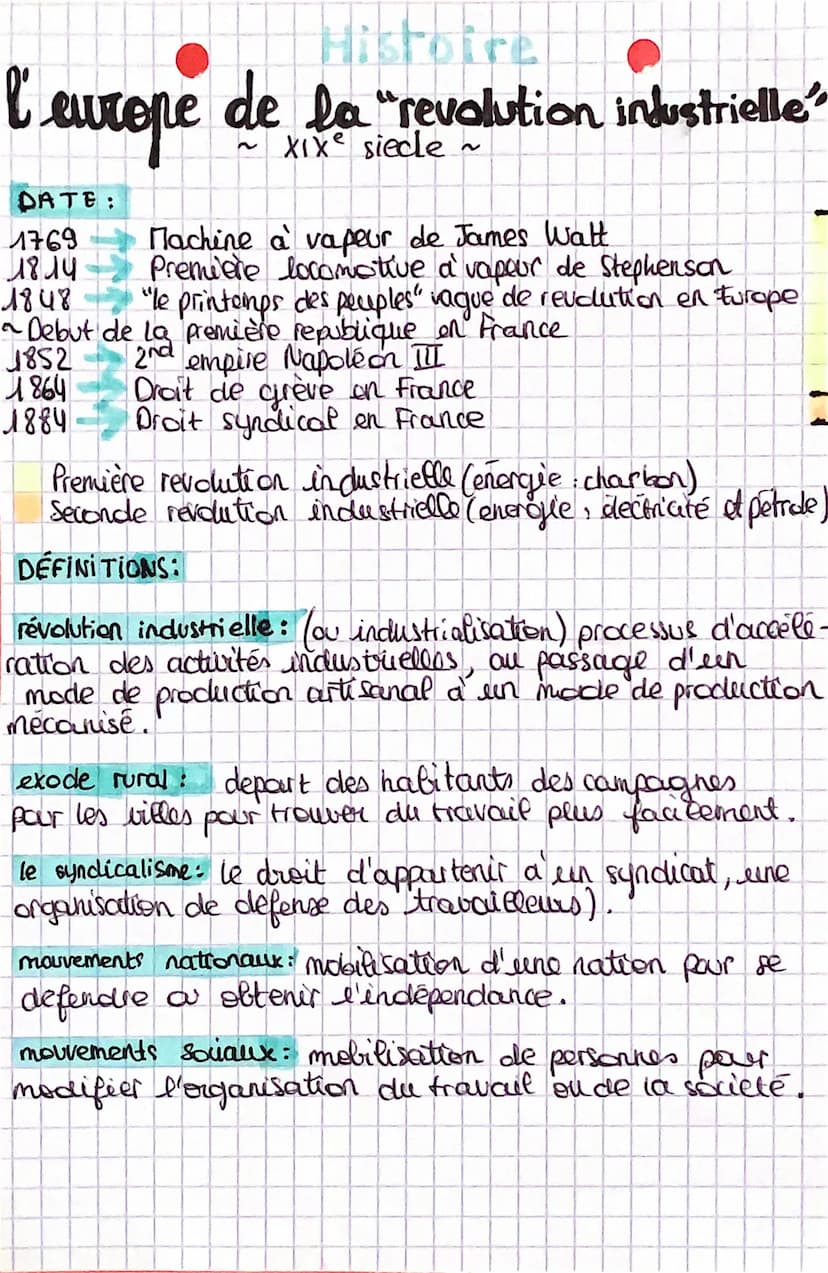 Histoire
l'europe de la "revolution industrielle"
~ XIXe siecle ~
DATE :
1769 → Machine à vapeur de James Watt
1814 → Première locomotive à vapeur de Stephenson
1848 → "le printemps des peuples" vague de revolution en Europe
~ Debut de la première republique en France
1852 → 2nd empire Napoléon III
1864 → Droit de grève en France
1884 → Droit syndical en France
Première revolution industrielle (énergie : charbon)
Seconde revolution industrielle (energie : électricité et pétrole)
DÉFINITIONS:
révolution industrielle : (ou industrialisation) processus d'accélé-
ration des activités industrielles, au passage d'un
mode de production artisanal à un mode de production
mécanisé.
exode rural : depart des habitants des campagnes
pour les villes pour trouver du travail plus facilement.
le syndicalisme : le droit d'appartenir à un syndicat, une
organisation de défense des travailleurs).
mouvements nationaux : mobilisation d'une nation pour se
défendre ou obtenir l'indépendance.
mouvements sociaux : mobilisation de personnes pour
modifier l'organisation du travail ou de la société.